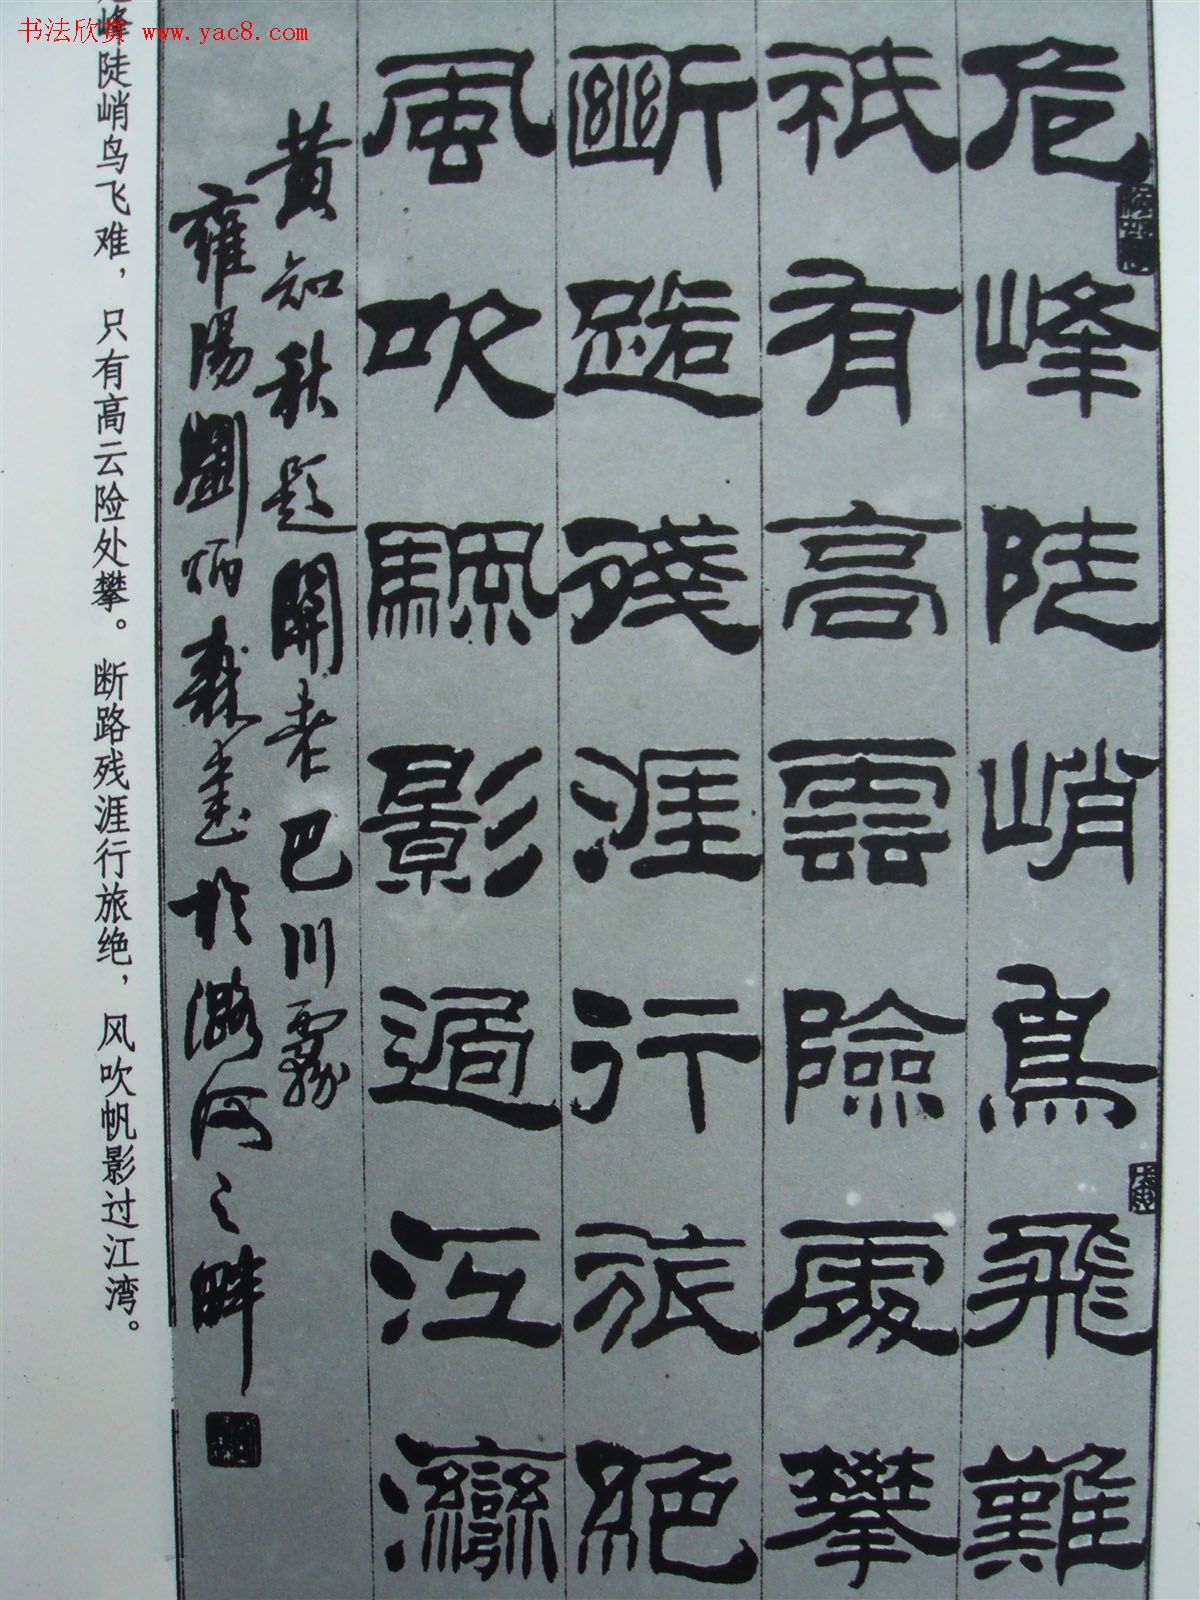 书法欣赏 www.yac8.com
危峰陡峭鳥飛難
祇有高雲險處攀
斷路殘涯行旅絕
風吹颿影過江灣
黃知秋題關老巴川霧
雍陽劉炳森書於潞河之畔
危峰陡峭鸟飞难，只有高云险处攀。断路残涯行旅绝，风吹帆影过江湾。